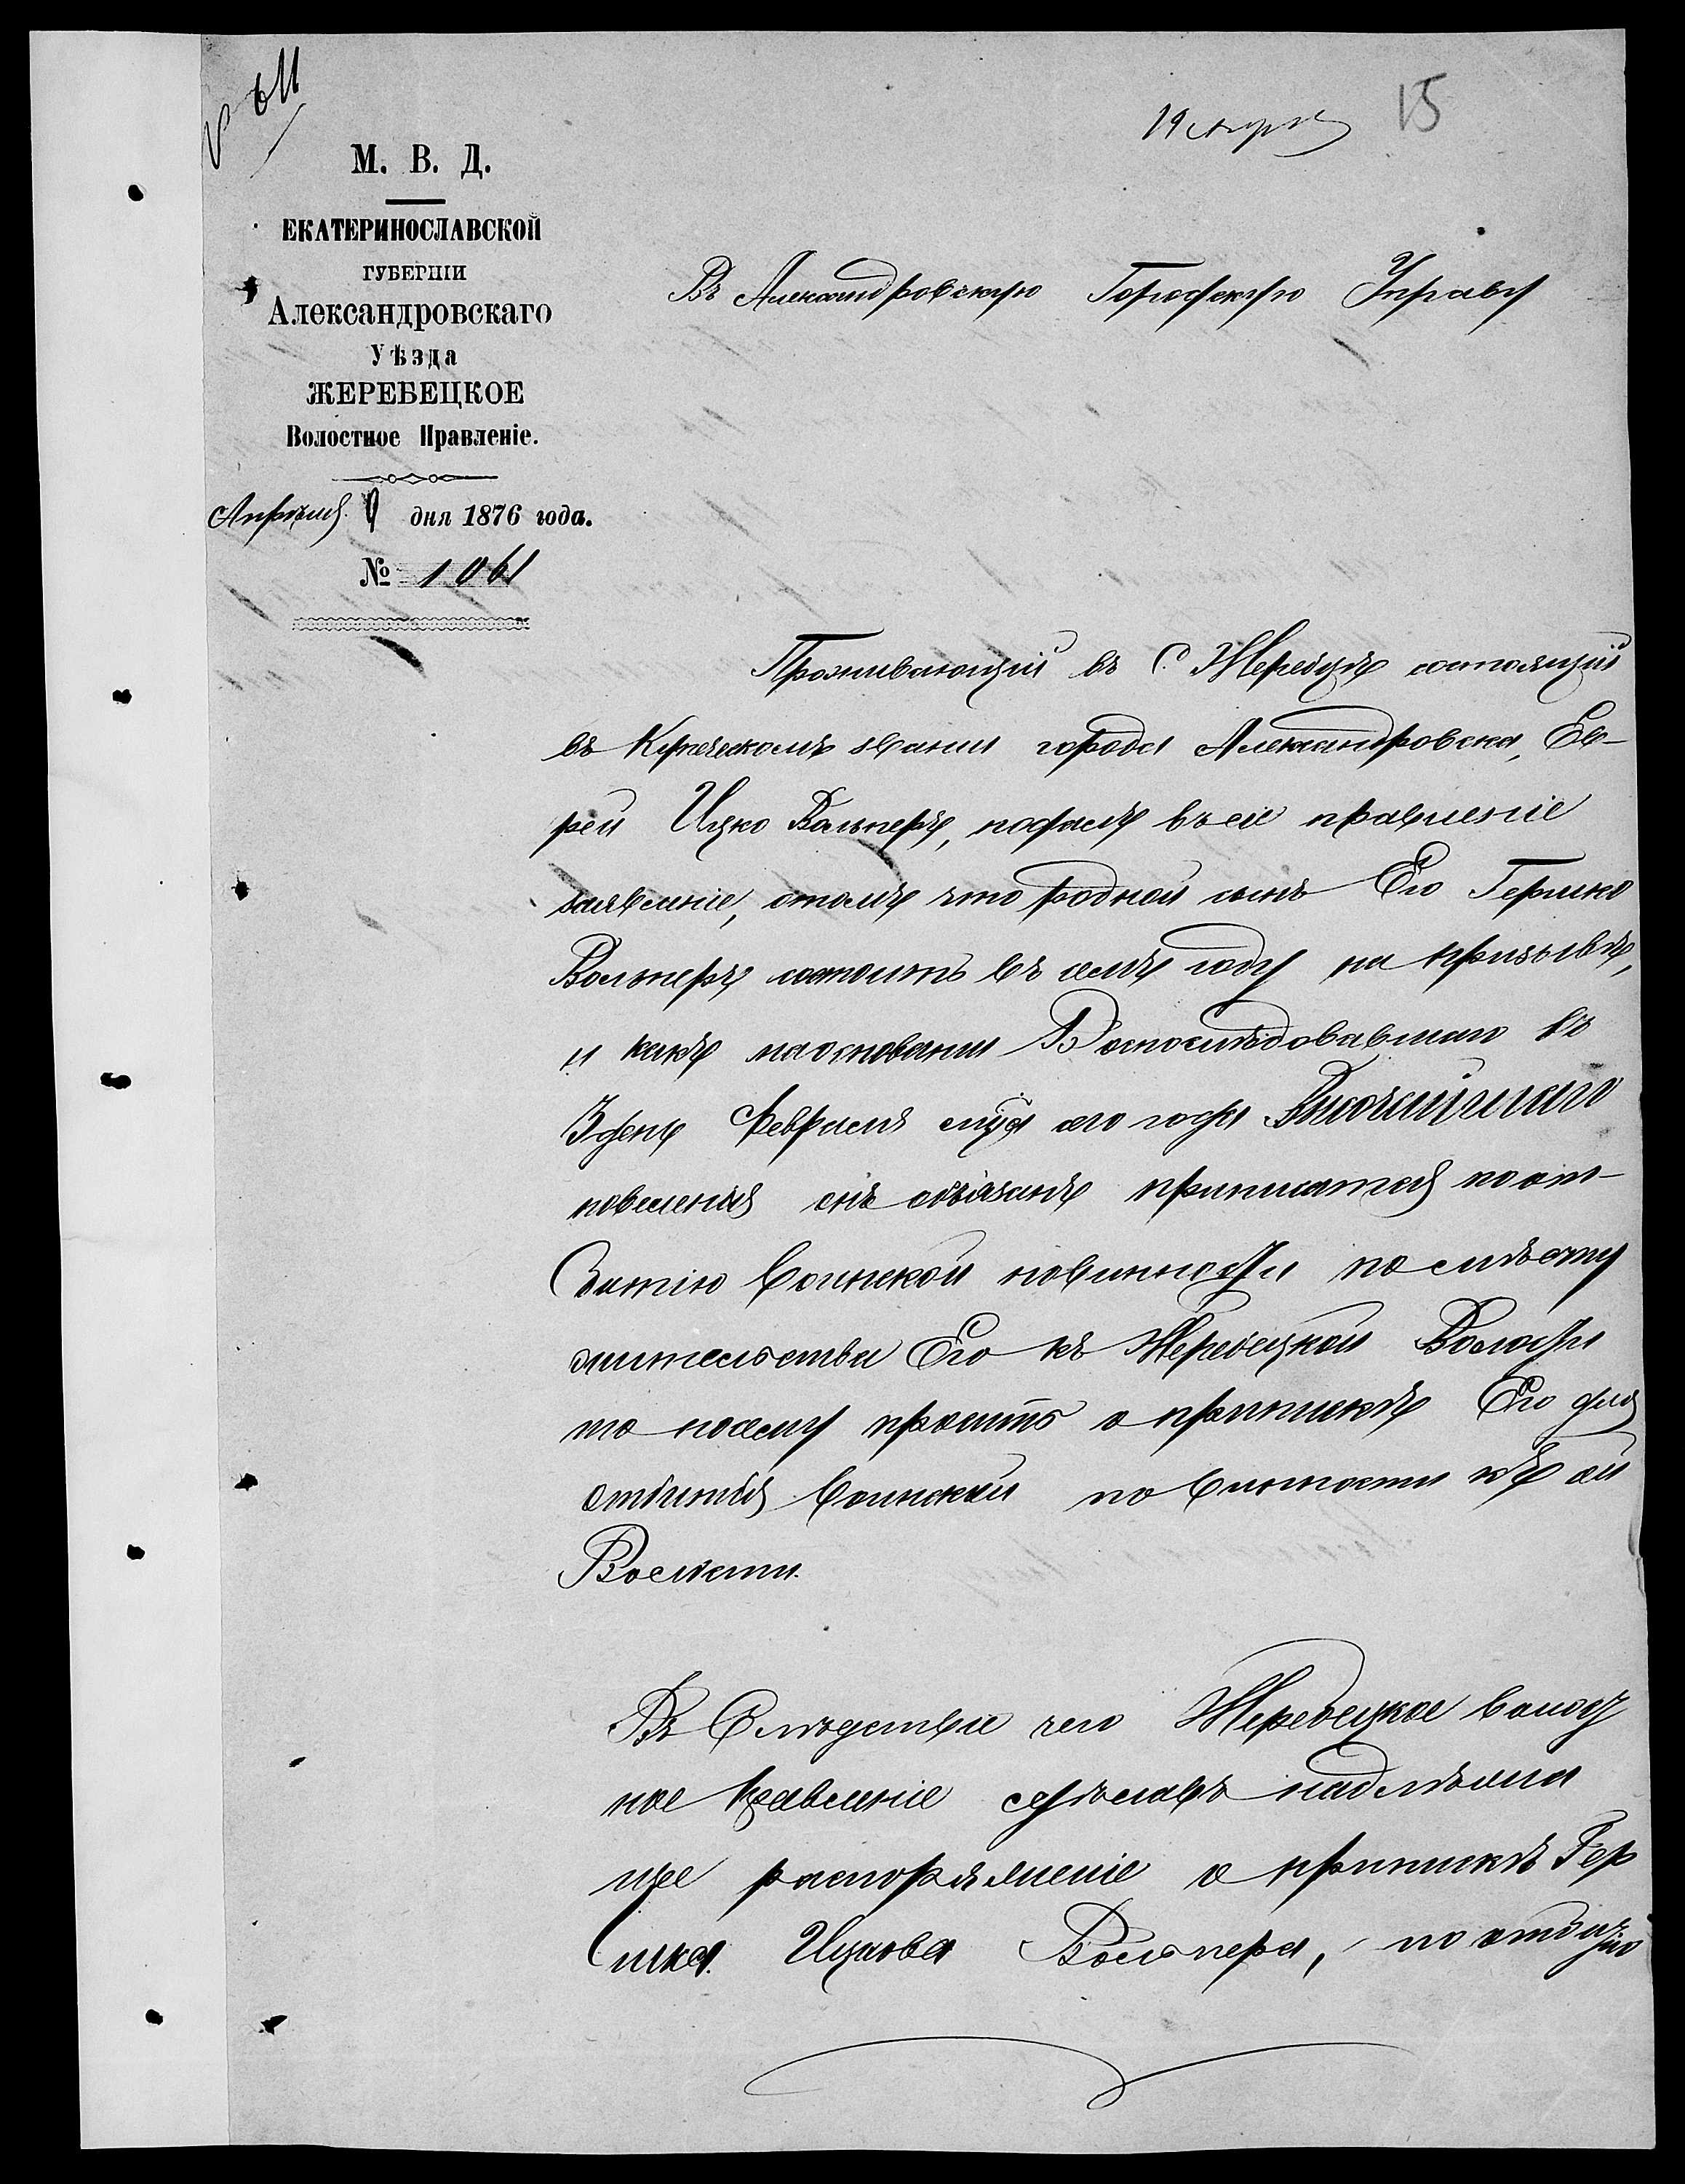 № 611
19 Апрѣ
15
М. В. Д.
ЕКАТЕРИНОСЛАВСКОЙ
ГУБЕРНІИ
Александровскаго
Уѣзда
ЖЕРЕБЕЦКОЕ
Волостное Правленіе.
Апрѣля 9 дня 1876 года.
№ 1061
Въ Александровскую Городскую Управу
Проживающій въ С. Жеребцѣ состоящій
въ Купеческомъ званіи города Александровска, Ев-
рей Ицко Вольнеръ, подалъ въ сіе правленіе
заявленіе, отомъ что родной сынъ Его Гершко
Вольнеръ состоитъ въ семъ году на призывѣ,
и какъ на основаніи Воспослѣдовавшаго въ
3 день Февраля сего года Высочайшаго
повеленія онъ обязанъ приписатся по от-
битію Воинской повинности по мѣсту
жительства Его къ Жеребецкой Волости
то посему проситъ о припискѣ Его для
отбитія Воинской повинности къ ей
Волости.
Въ Слѣдствіе чего Жеребецкое волост
ное Правленіе сдѣлавъ надлѣжа
щее распоряженіе о припискѣ Гер
шка Ицкова Вольнера, по отбитію